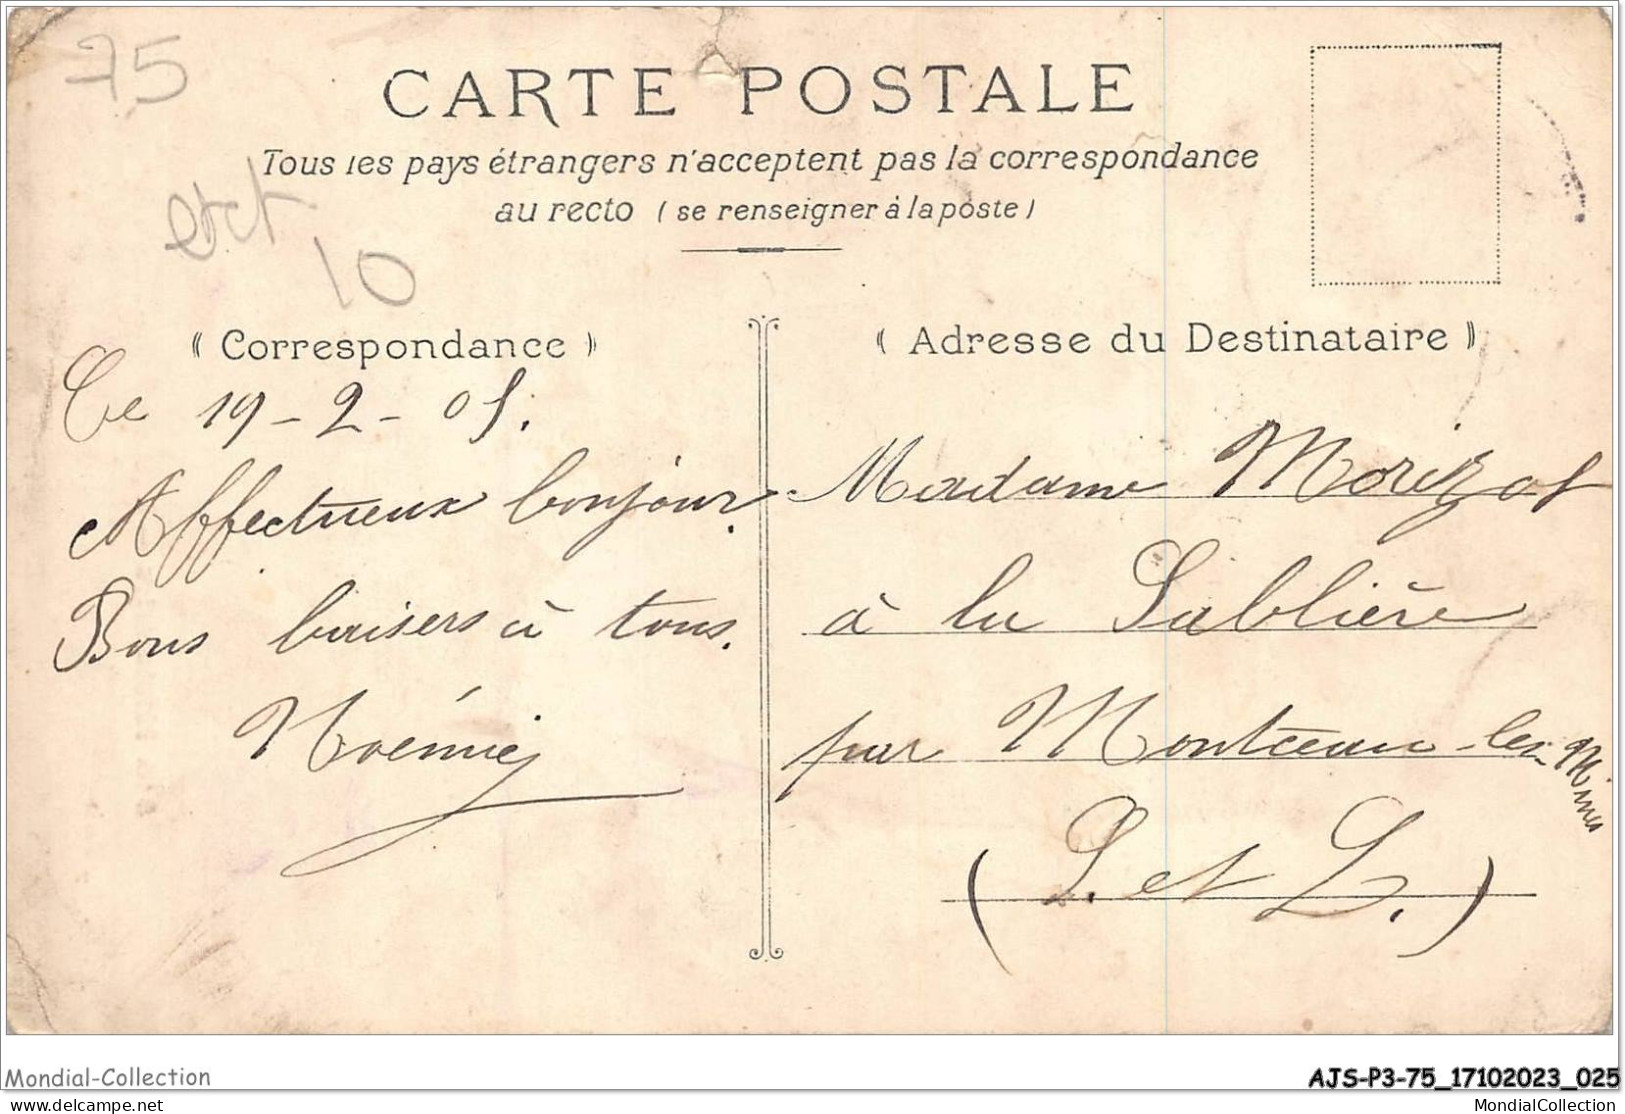 75
CARTE POSTALE
Tous les pays étrangers n'acceptent pas la correspondance
au recto (se renseigner à la poste)
10
« Correspondance »
Ce 19-2-05.
Affectueux bonjour.
Bons baisers à tous.
Noémie
« Adresse du Destinataire »
Madame Morizot
à la Sablière
par Montceau-les-Mines
(S. et L.)
Mondial-Collection
AJS-P3-75_17102023_025
delcampe.net
MondialCollection